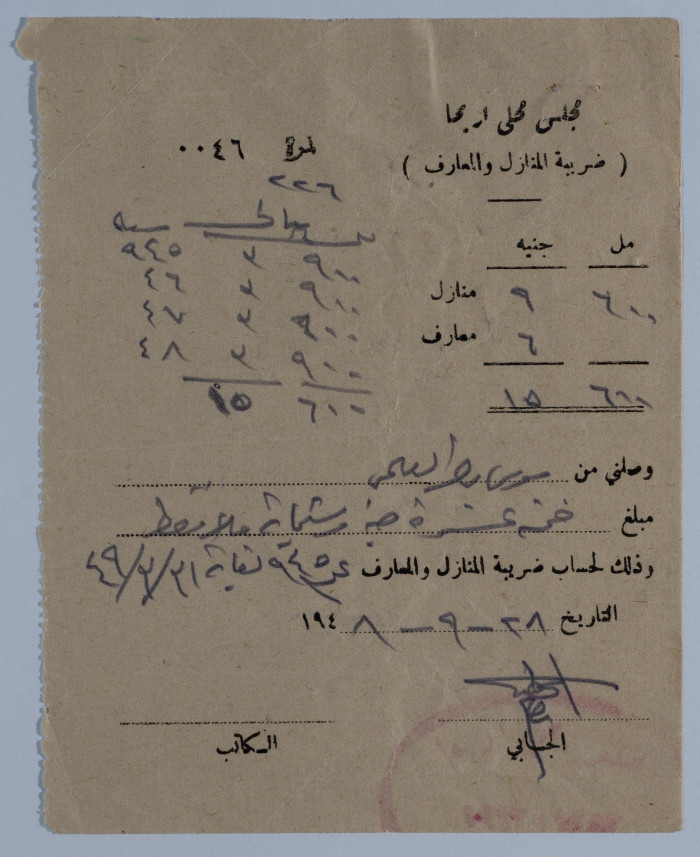 مجلس محلي اريحا
( ضريبة المنازل والمعارف )
نمرة ٠٠٤٦
٢٢٦
مل جنيه
٦٠٠ ٩ منازل
٦ معارف
٦٠٠ ١٥
سنة
٩٠٠ ٣ ٩٤٥
٩٠٠ ٣ ٤٦
٩٠٠ ٣ ٤٧
٩٠٠ ٣ ٤٨
٦٠٠ ١٥
وصلني من العلمي
مبلغ خمسة عشرة جنيه وستماية ملا فقط
وذلك لحساب ضريبة المنازل والمعارف عن ٩٤٥ لغاية ٤٩/٣/٣١
التاريخ ٢٨ - ٩ - ١٩٤٨
الجابي
الكاتب